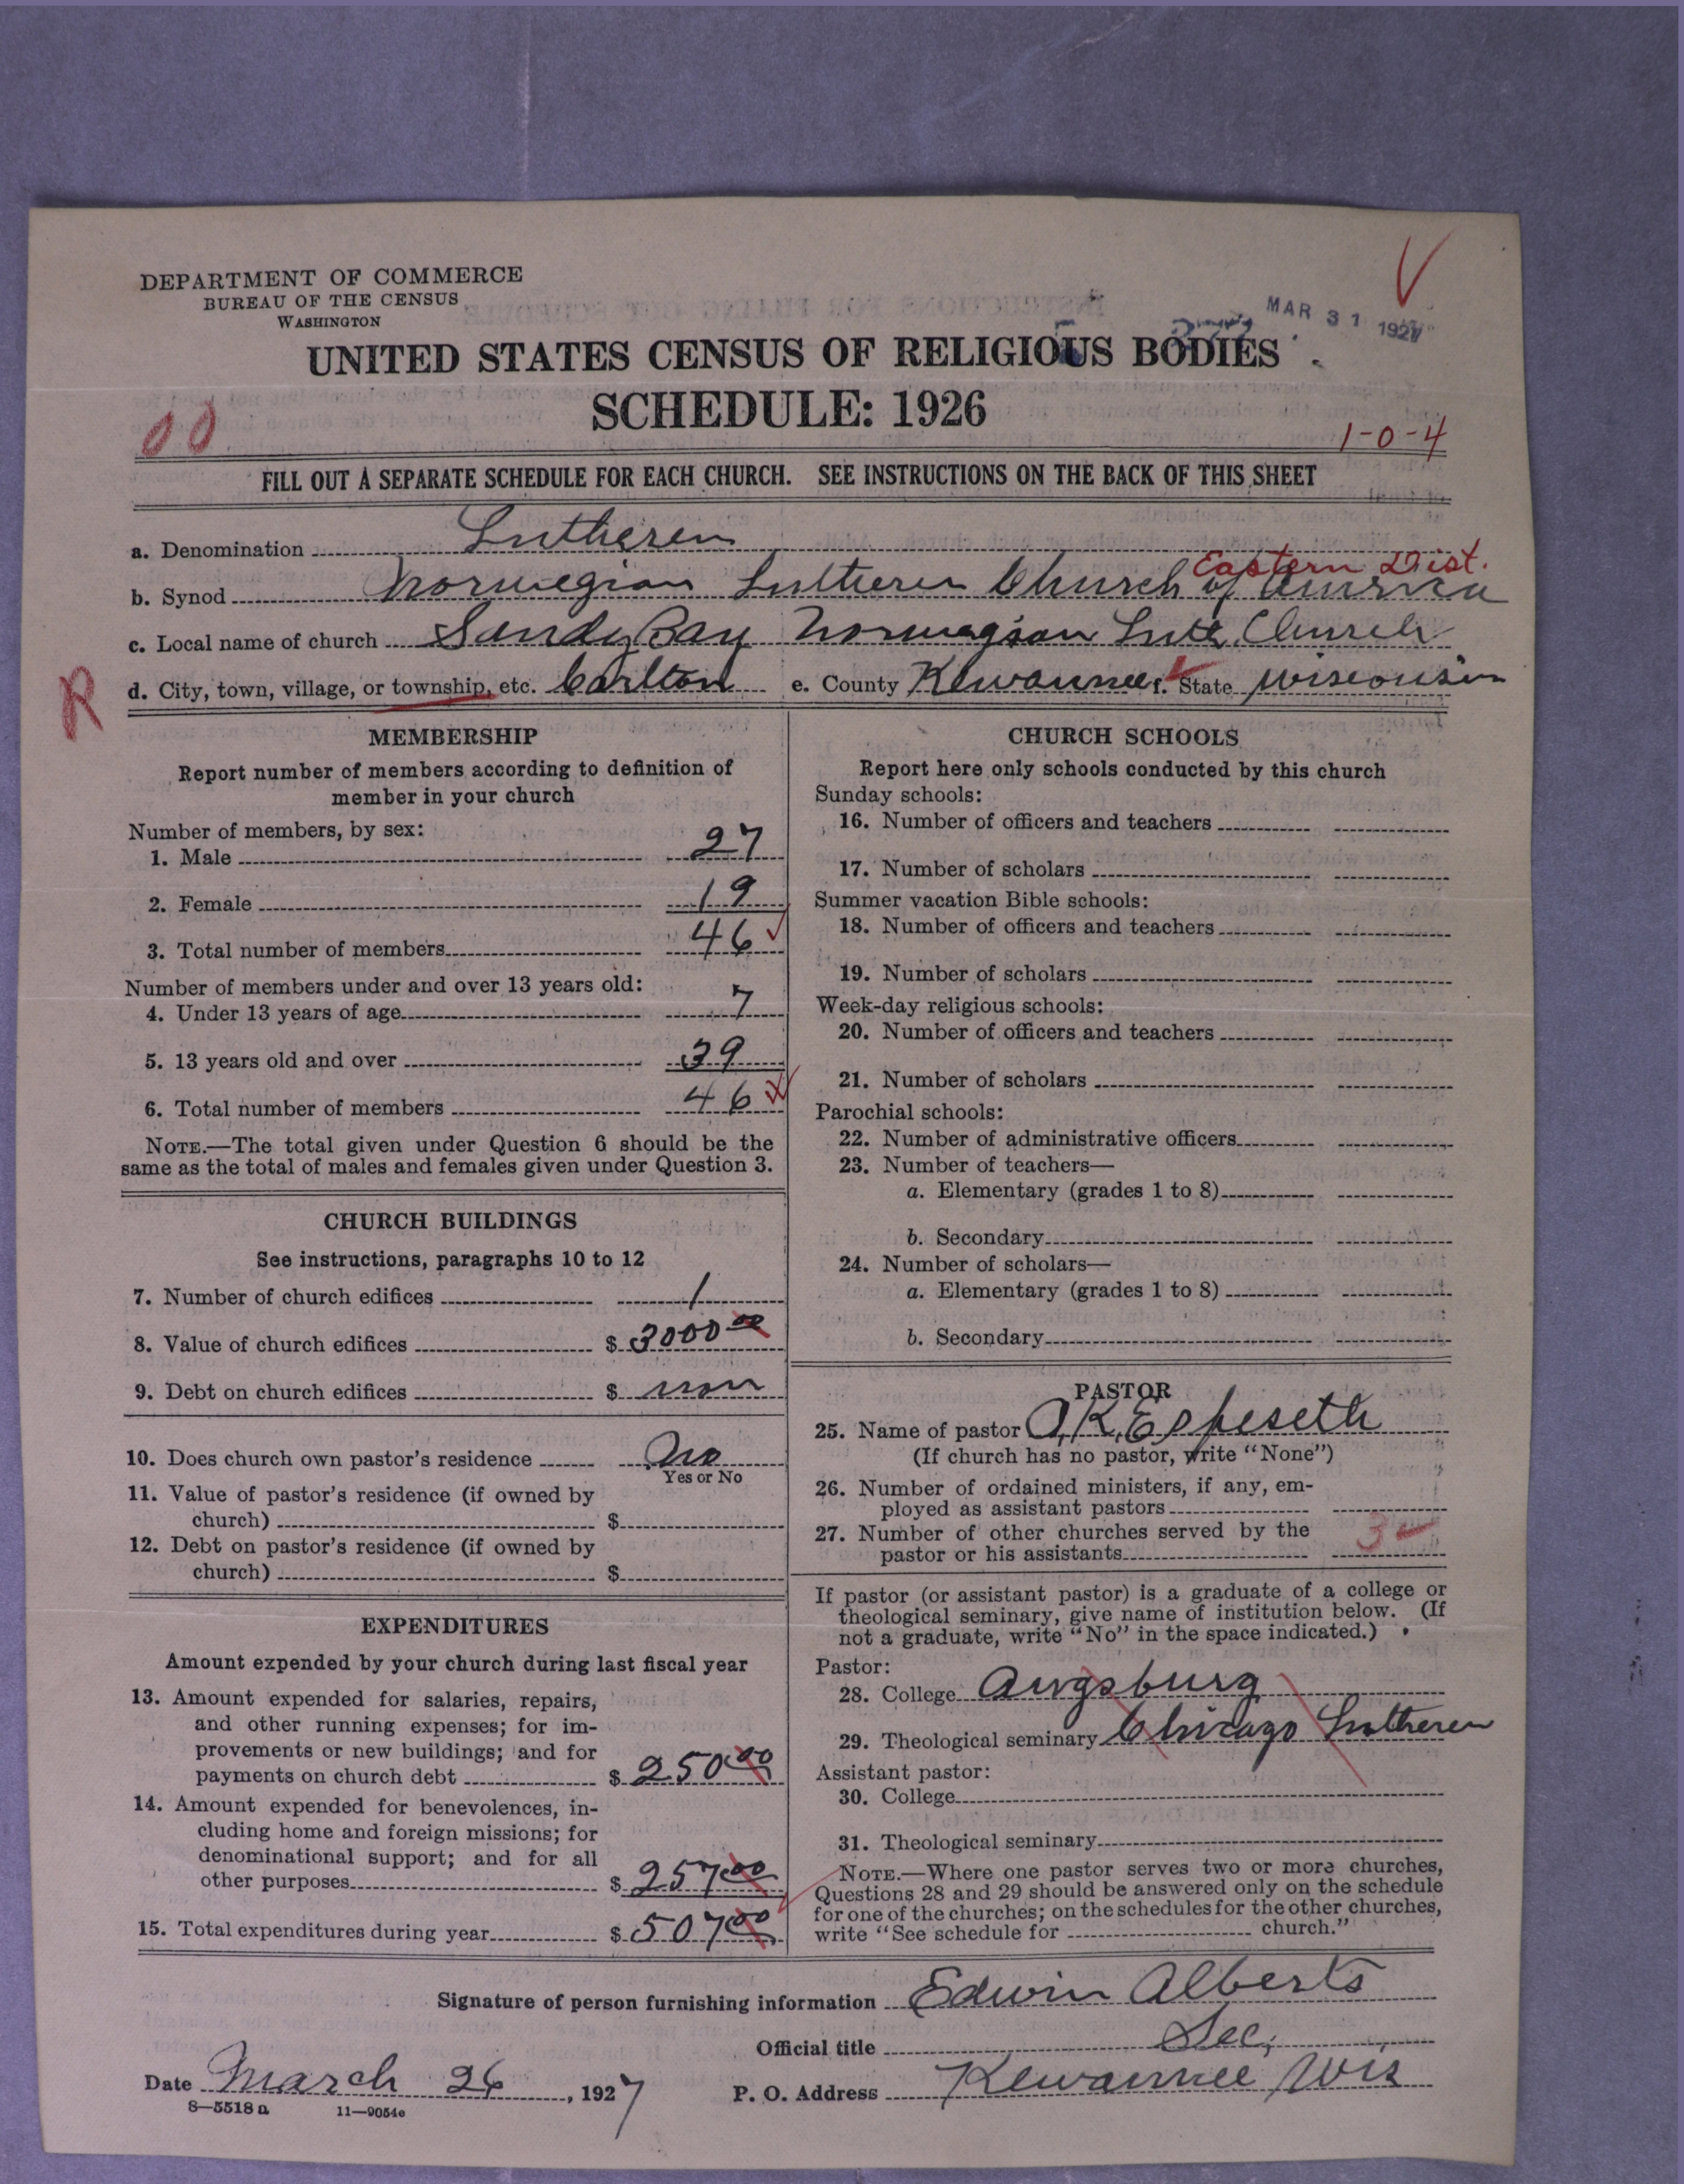 DEPARTMENT OF COMMERCE
BUREAU OF THE CENSUS
WASHINGTON
MAR 31 1927
UNITED STATES CENSUS OF RELIGIOUS BODIES
SCHEDULE: 1926
00
1-0-4
FILL OUT A SEPARATE SCHEDULE FOR EACH CHURCH. SEE INSTRUCTIONS ON THE BACK OF THIS SHEET
a. Denomination Lutheren
Eastern Dist.
b. Synod Norwegian Lutheren Church of America
c. Local name of church Sandy Bay Norwegian Luth. Church
R d. City, town, village, or township, etc. Carlton e. County Kewaunee f. State Wisconsin
MEMBERSHIP
Report number of members according to definition of
member in your church
Number of members, by sex:
1. Male 27
2. Female 19
3. Total number of members 46
Number of members under and over 13 years old:
4. Under 13 years of age 7
5. 13 years old and over 39
6. Total number of members 46
NOTE.—The total given under Question 6 should be the
same as the total of males and females given under Question 3.
CHURCH BUILDINGS
See instructions, paragraphs 10 to 12
7. Number of church edifices 1
8. Value of church edifices $ 3000 00
9. Debt on church edifices $ non
10. Does church own pastor's residence No
Yes or No
11. Value of pastor's residence (if owned by
church) $
12. Debt on pastor's residence (if owned by
church) $
EXPENDITURES
Amount expended by your church during last fiscal year
13. Amount expended for salaries, repairs,
and other running expenses; for im-
provements or new buildings; and for
payments on church debt $ 250 00
14. Amount expended for benevolences, in-
cluding home and foreign missions; for
denominational support; and for all
other purposes $ 257 00
15. Total expenditures during year $ 507 00
CHURCH SCHOOLS
Report here only schools conducted by this church
Sunday schools:
16. Number of officers and teachers
17. Number of scholars
Summer vacation Bible schools:
18. Number of officers and teachers
19. Number of scholars
Week-day religious schools:
20. Number of officers and teachers
21. Number of scholars
Parochial schools:
22. Number of administrative officers
23. Number of teachers—
a. Elementary (grades 1 to 8)
b. Secondary
24. Number of scholars—
a. Elementary (grades 1 to 8)
b. Secondary
PASTOR
25. Name of pastor O.K. Espeseth
(If church has no pastor, write "None")
26. Number of ordained ministers, if any, em-
ployed as assistant pastors
27. Number of other churches served by the
pastor or his assistants 3
If pastor (or assistant pastor) is a graduate of a college or
theological seminary, give name of institution below. (If
not a graduate, write "No" in the space indicated.)
Pastor:
28. College Augsburg
29. Theological seminary Chicago Lutheren
Assistant pastor:
30. College
31. Theological seminary
NOTE.—Where one pastor serves two or more churches,
Questions 28 and 29 should be answered only on the schedule
for one of the churches; on the schedules for the other churches,
write "See schedule for church."
Signature of person furnishing information Edwin Alberts
Official title Sec,
Date March 26, 1927 P. O. Address Kewaunee Wis
8—5518 a 11—9054e